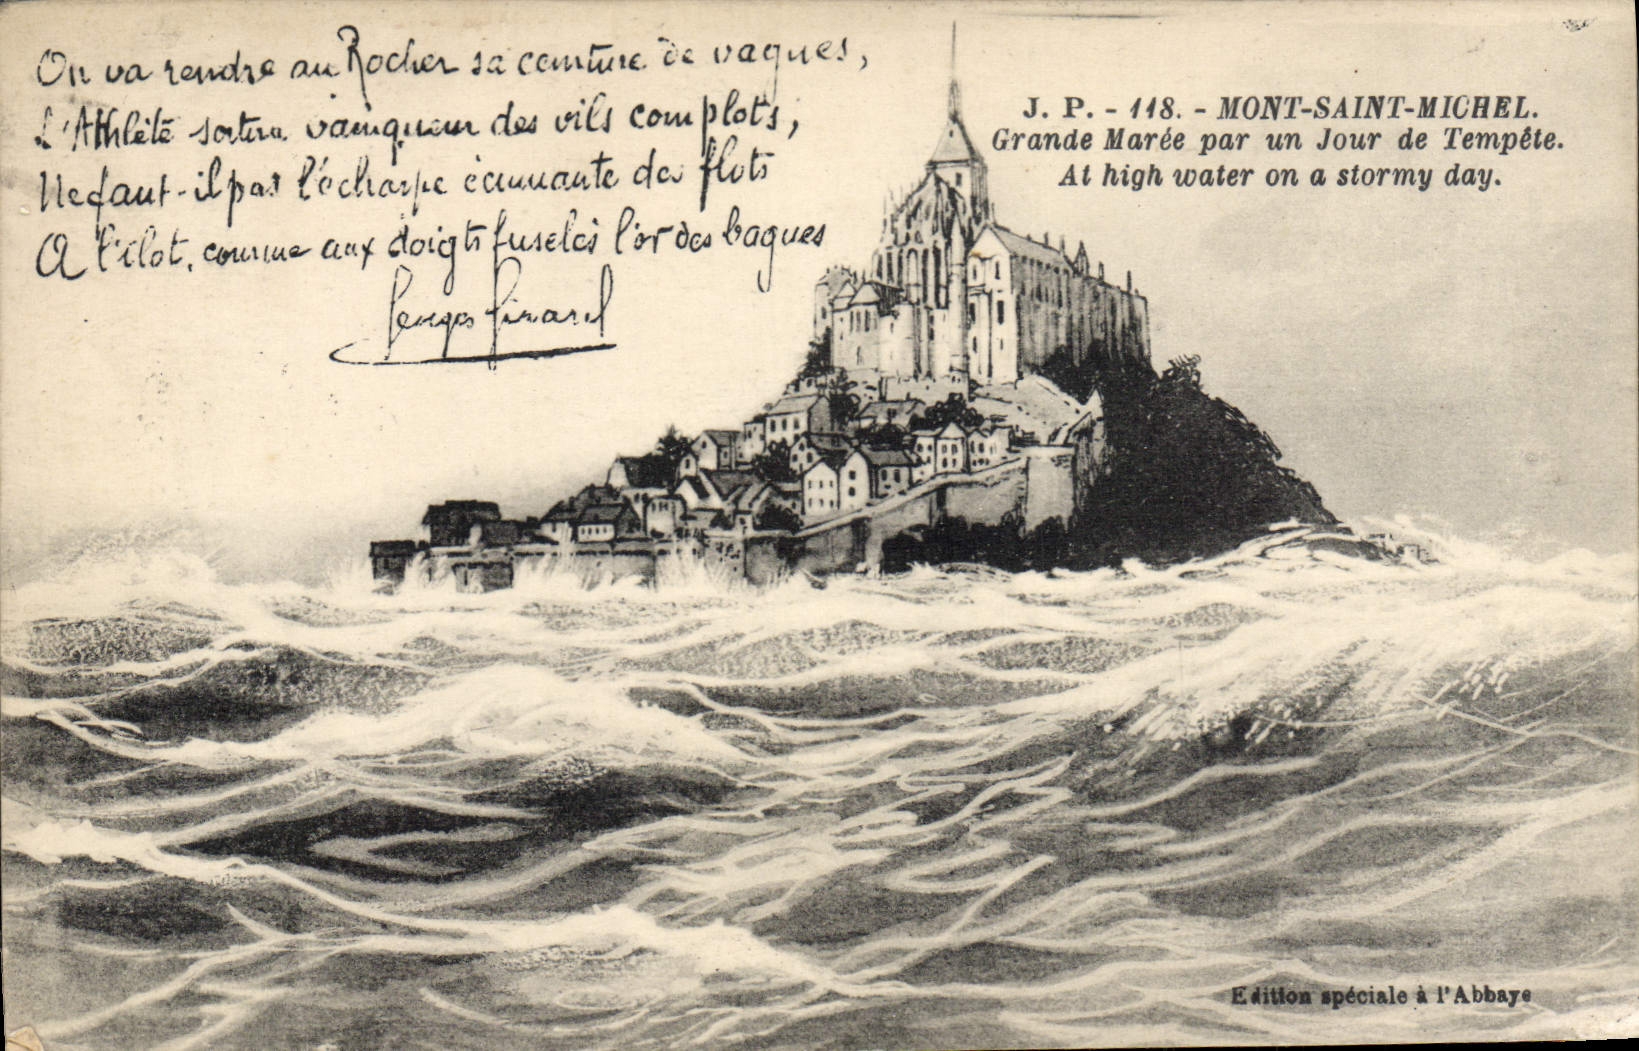 On va rendre au Rocher sa ceinture de vagues,
L'Athlète sortira vainqueur des vils complots,
Ne faut-il pas l'écharpe écumante des flots
A l'ilot, comme aux doigts fuselés l'or des bagues
Georges Girard
J. P. - 118. - MONT-SAINT-MICHEL.
Grande Marée par un Jour de Tempête.
At high water on a stormy day.
Edition spéciale à l'Abbaye